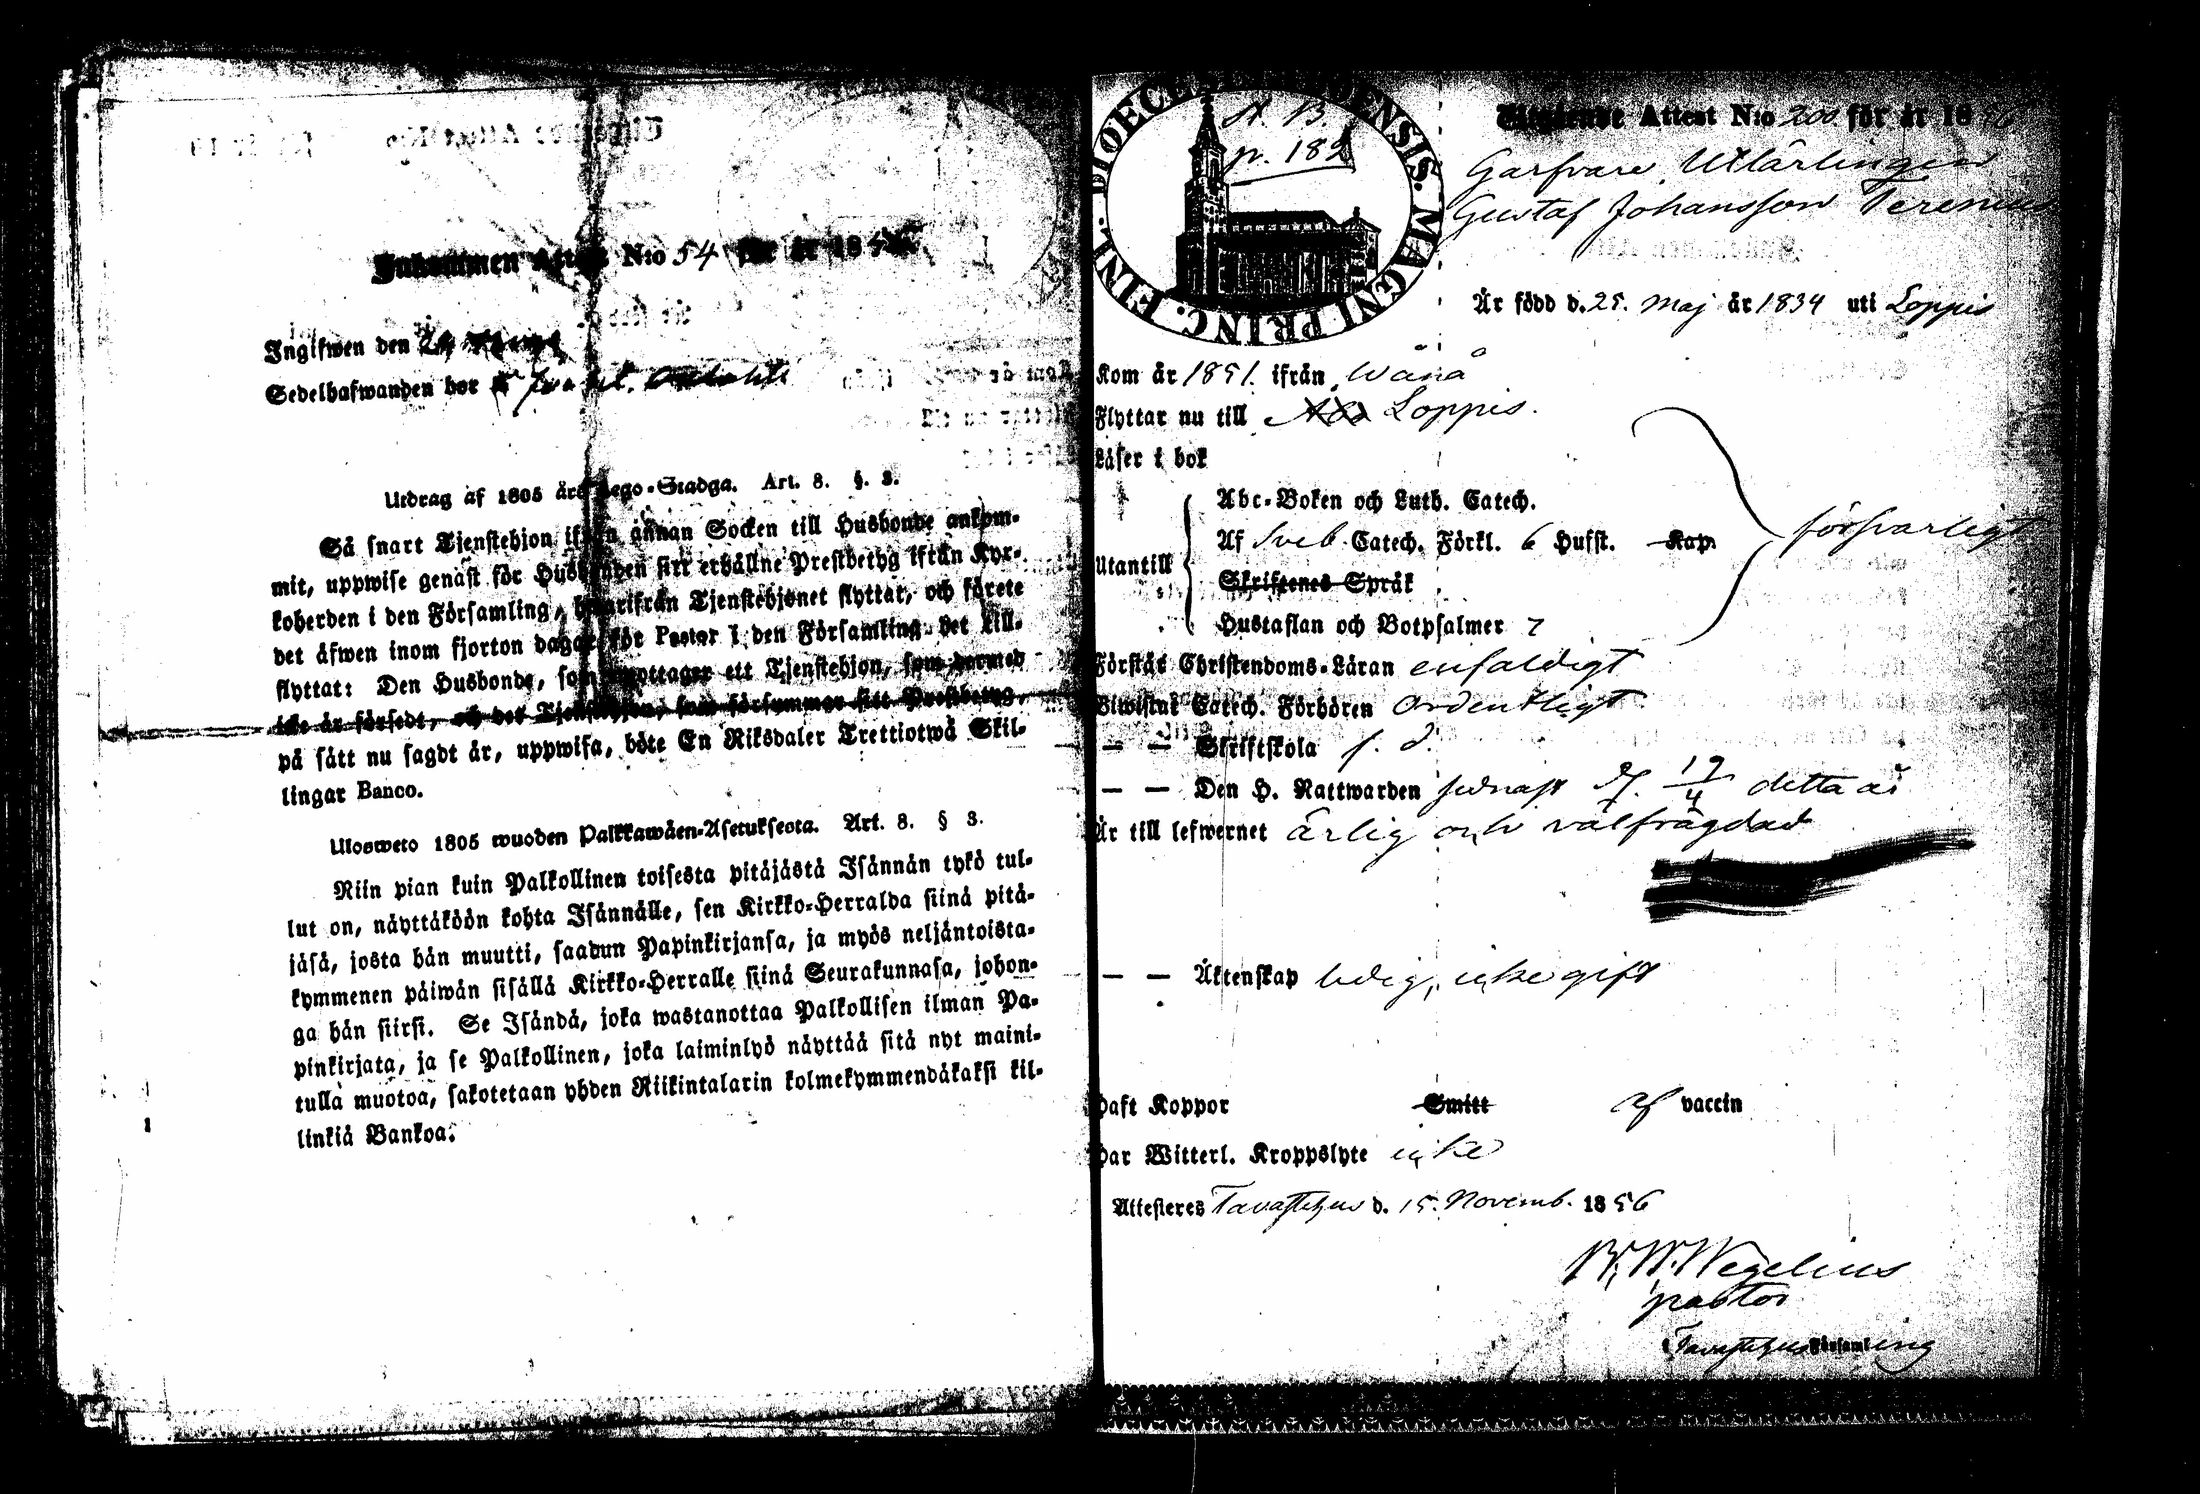 Inkommen Attest N:o 54 för år 18
Ingifwen den
Sedelhafwanden bor
Utdrag af 1805 års Lego-Stadga. Art. 8. §. 3.
Så snart Tjenstehjon ifrån annan Socken till Husbonde ankom-
mit, uppwise genast för Husbonden sitt erhållne Prestbetyg ifrån Kyr-
koherden i den Församling, hwarifrån Tjenstehjonet flyttat, och förete
det äfwen inom fjorton dagar för Pastor i den Församling det till-
flyttat: Den Husbonde, som emottager ett Tjenstehjon, som dermed
icke är försedt, och det Tjenstehjon, som försummar sitt Prestbetyg,
på sätt nu sagdt är, uppwisa, böte En Riksdaler Trettiotwå Skil-
lingar Banco.
Ulosweto 1805 wuoden Palkkawäen-Asetuksesta. Art. 8. § 3.
Niin pian kuin Palkollinen toisesta pitäjästä Isännän tykö tul-
lut on, näyttäköön kohta Isännälle, sen Kirkko-Herralda siinä pitä-
jäsä, josta hän muutti, saadun Papinkirjansa, ja myös neljäntoista-
kymmenen päiwän sisällä Kirkko-Herralle siinä Seurakunnasa, johon-
ga hän siirsi. Se Isändä, joka wastanottaa Palkollisen ilman Pa-
pinkirjata, ja se Palkollinen, joka laiminlyö näyttää sitä nyt maini-
tulla muotoa, sakotetaan yhden Riikintalarin kolmekymmendäkaksi kil-
linkiä Bankoa.
p. 182
Utgående Attest N:o 200 för år 1856
Garfvare Utlärlingen
Gustaf Johansson Terenius
Är född d. 25. Maj år 1834 uti Loppis
Kom år 1851. ifrån Wånå
Flyttar nu till Loppis.
Läser i bok
Abc-Boken och Luth. Catech.
Utantill Af Sveb. Catech. Förkl. 6 Hufst. Kap. försvarligt
Skriftenes Språk
Hustaflan och Botpsalmer 7
Förstår Christendoms-Läran enfaldigt
Biwistat Catech. Förhören Ordentligt
— — Skriftskola s. d.
— — Den H. Nattwarden sednast d. 19/4 detta år
Är till lefwernet ärlig och välfrägdad
— — Äktenskap ledig, icke gift
Haft Koppor Smitt af vaccin
Har Witterl. Kroppslyte icke
Attesteras Tavastehus d. 15. Novemb. 1856
Wegelius
pastor
Tavastehus Församling